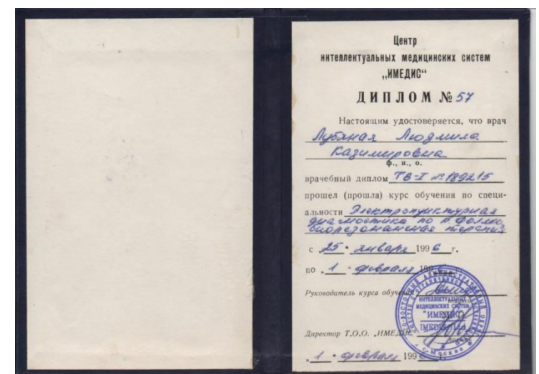 Центр
интеллектуальных медицинских систем
„ИМЕДИС“
ДИПЛОМ № 57
Настоящим удостоверяется, что врач
Лубяная Людмила
Казимировна
ф., и., о.
врачебный диплом ТВ-I №
прошел (прошла) курс обучения по специ-
альности Электропунктурная
диагностика по Р. Фоллю,
биорезонансная терапия
с 25 • января 1996 г.
по 1 • февраля 199
Руководитель курса обуч
ИНТЕЛЛЕКТУАЛЬНЫХ
МЕДИЦИНСКИХ СИСТЕМ
"ИМЕДИС"
Директор Т.О.О. „ИМЕДИС“
„ 1 • февраля 199